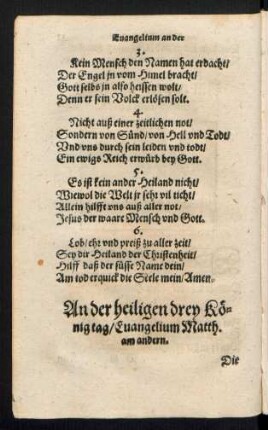 Euangelium an der
3.
Kein Mensch den Namen hat erdacht/
Der Engel jn vom Himel bracht/
Gott selbs jn also heissen wolt/
Denn er sein Volck erlösen solt.
4.
Nicht auß einer zeitlichen not/
Sondern von Sünd/von Hell vnd Todt/
Vnd vns durch sein leiden vnd todt/
Ein ewigs Reich erwürb bey Gott.
5.
Es ist kein ander Heiland nicht/
Wiewol die Welt jr sehr vil ticht/
Allein hilfft vns auß aller not/
Jesus der waare Mensch vnd Gott.
6.
Lob/ehr vnd preiß zu aller zeit/
Sey dir Heiland der Christenheit/
Hilff daß der süsse Name dein/
Am tod erquick die Seele mein/Amen.
An der heiligen drey Kö-
nig tag/Euangelium Matth.
am andern.
Die